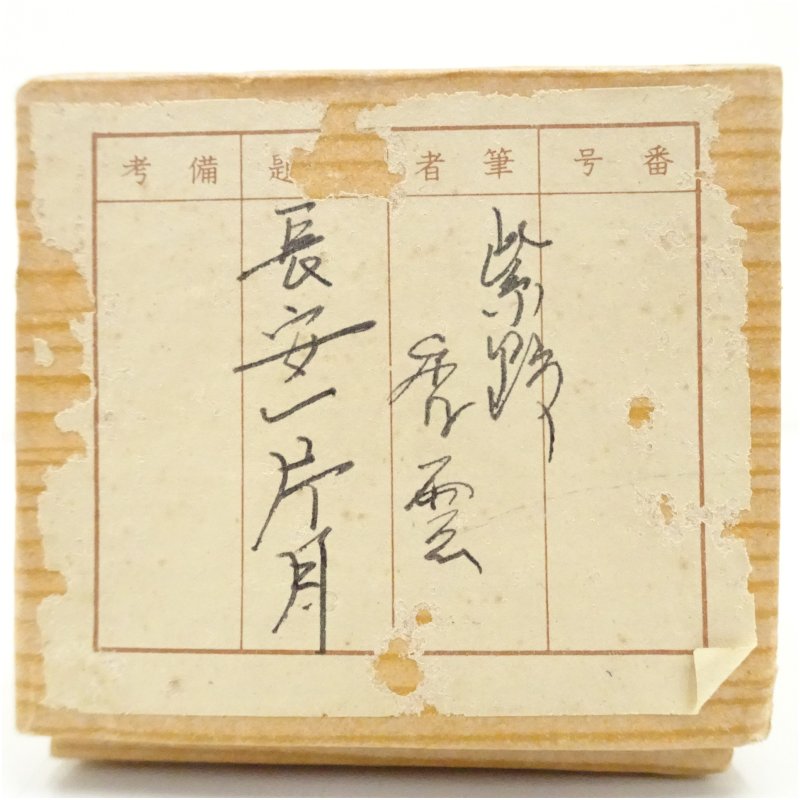 番号
筆者
題
備考
紫野
秀雲
長安一片月